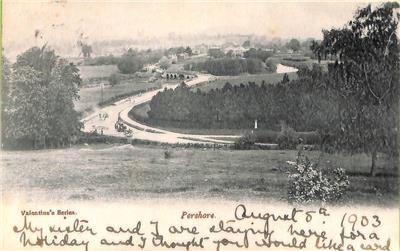 Valentine's Series.
Pershore.
August 5th 1903
My sister and I are staying here for a
holiday and I thought you would like a card